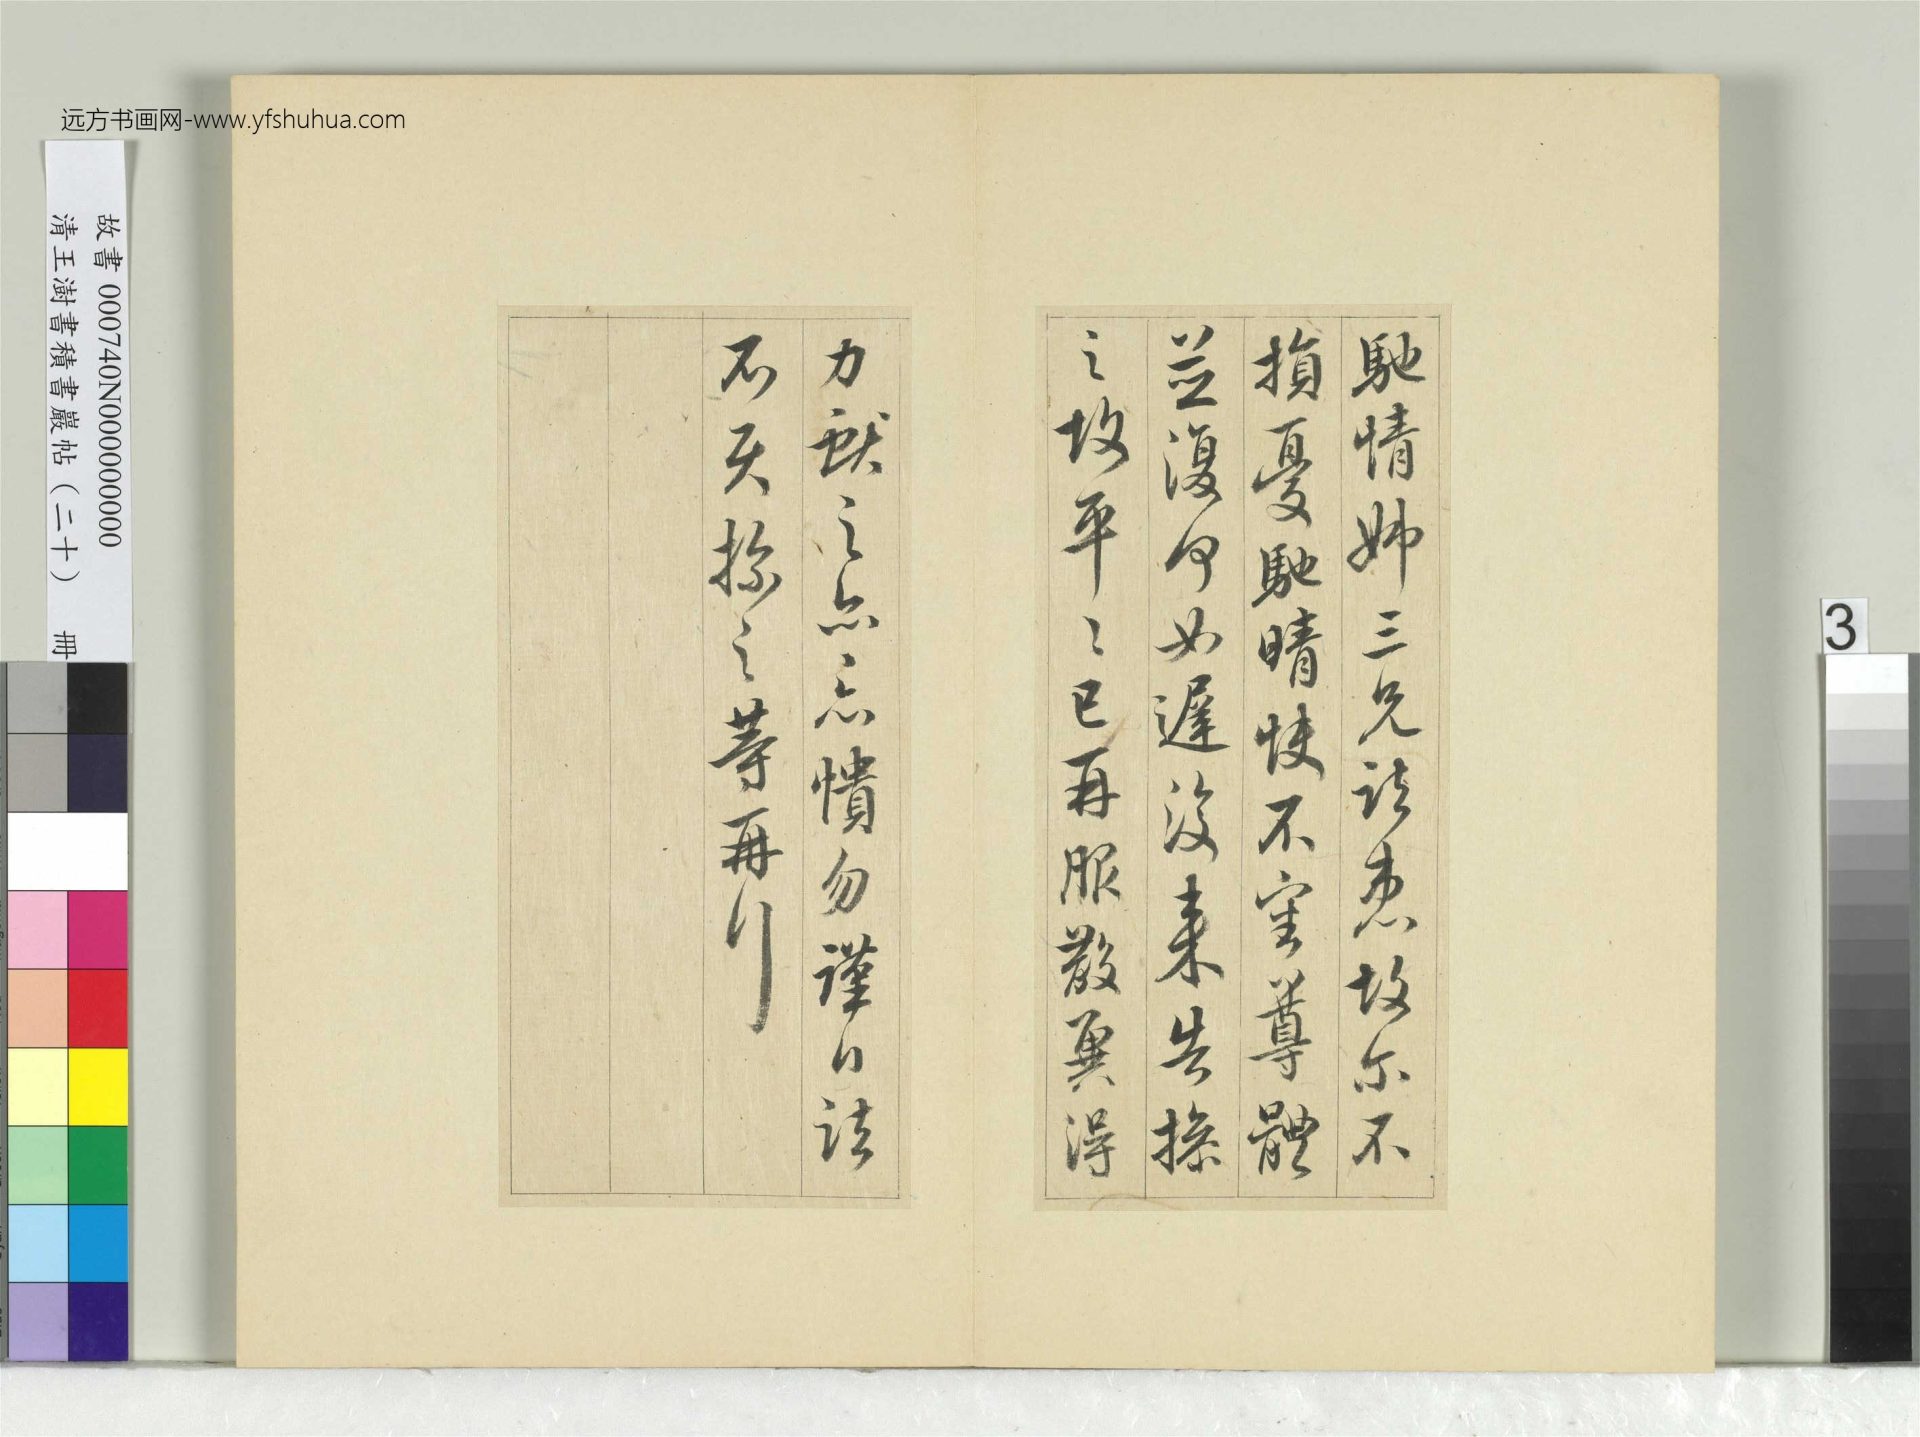 远方书画网-www.yfshuhua.com
故書 000740N000000000
清王澍書積書巖帖（二十） 冊
3
馳情姊三兄諸患故尔不
損憂馳情悚不寧尊體
並復何如遲後來告操
之故平平已再服散冀得
力獻之忽忽憒勿謹白諸
不具操之等再行